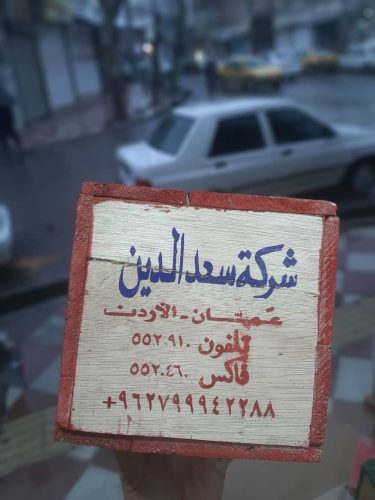 شركة سعد الدين
عمان - الأردن
تلفون ٥٥٢.٩١٠
فاكس ٥٥٢.٤٦٠
+٩٦٢٧٩٩٩٤٢٢٨٨